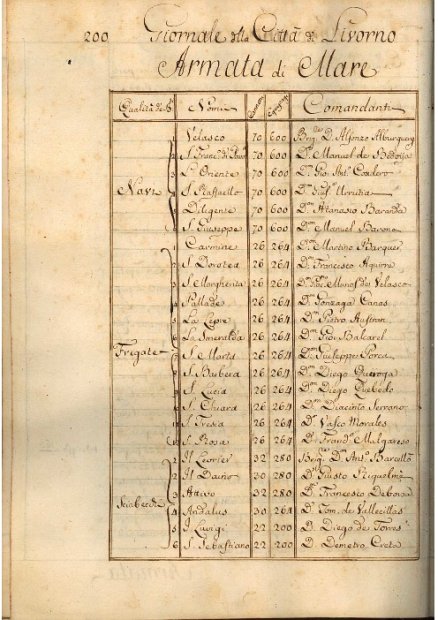 200 Giornale della Città di Livorno
Armata di Mare
Qualità Nomi Cannoni Equipag. Comandanti
Navi
1 Velasco 70 600 Brig. D. Alfonzo Alburquerq
2 S. Franc. 70 600 Dn. Manuel de
3 S. Oriente 70 600 Dn. Gio. Ant. Cordero
4 S. Raffaello 70 600 Dn. Urrutia
5 Diligente 70 600 Dn. Attanasio Baranda
6 S. Giuseppe 70 600 Dn. Manuel Barona
Frigate
1 Carmine 26 264 Dn. Martino Barquer
2 S. Dorotea 26 264 Dn. Francesco Aguirre
3 S. Margherita 26 264 Dn. Velasco
4 Pallade 26 264 Dn. Gonzaga Canas
5 La Lepre 26 264 Dn. Pietro Austran
6 La Smeralda 26 264 Dn. Gio. Balcarel
7 S. Marta 26 264 Dn. Guiseppe Porca
8 S. Barbera 26 264 Dn. Diego Quiroga
9 S. Lucia 26 264 Dn. Diego Quebedo
S. Chiara 26 264 Dn. Diacinto Serrano
S. Tresia 26 264 Dn. Vasco Morales
S. Rosa 26 264 Dn. Malgareso
Sciabecchi
1 Il Levrier 32 280 Brig. Dn. Ant. Barcello
2 Il Daino 30 280 Dn. Giusto
3 Attivo 32 280 Dn. Francesco Deboada
4 Andalus 30 264 Dn. Tom. de Vallecillas
5 S. Luiigi 22 200 D. Diego de Torres
6 S. Sebastiano 22 200 D. Demetro Creta